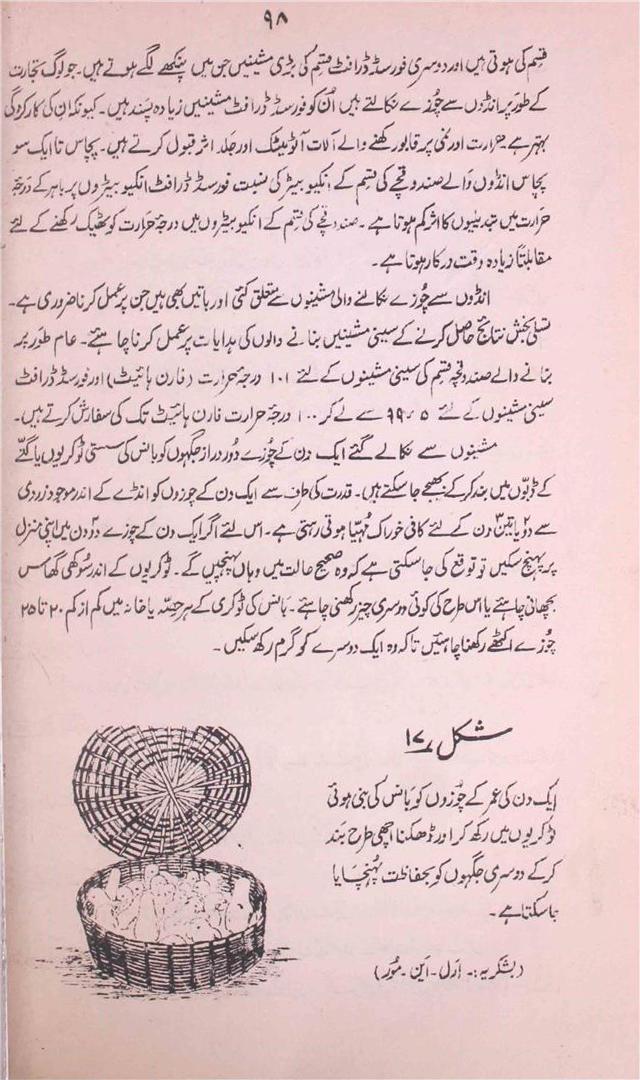 ۹۸
قسم کی ہوتی ہیں اور دوسری فورسڈ ڈرافٹ قسم کی بڑی مشینیں جن میں پنکھے لگے ہوتے ہیں۔ جو لوگ تجارت
کے طور پر انڈوں سے چوزے نکالتے ہیں اُن کو فورسڈ ڈرافٹ مشینیں زیادہ پسند ہیں۔ کیونکہ ان کی کارکردگی
بہتر ہے حرارت اور نمی پر قابو رکھنے والے آلات آٹومیٹک اور جلد اثر قبول کرتے ہیں۔ پچاس تا ایک سو
پچاس انڈوں والے صندوقچے کی قسم کے انکیوبیٹر کی نسبت فورسڈ ڈرافٹ انکیوبیٹروں پر باہر کے درجۂ
حرارت میں تبدیلیوں کا اثر کم ہوتا ہے۔ صندوقچے کی قسم کے انکیوبیٹروں میں درجۂ حرارت کو ٹھیک رکھنے کے لئے
مقابلتاً زیادہ دقت درکار ہوتا ہے۔
انڈوں سے چوزے نکالنے والی مشینوں سے متعلق کئی اور باتیں بھی ہیں جن پر عمل کرنا ضروری ہے۔
تسلی بخش نتائج حاصل کرنے کے سیٹی مشینیں بنانے والوں کی ہدایات پر عمل کرنا چاہئے۔ عام طور پر
بنانے والے صندوقچہ قسم کی سیٹی مشینوں کے لئے ۱۰۱ درجۂ حرارت (فارن ہائیٹ) اور فورسڈ ڈرافٹ
سیٹی مشینوں کے لئے ۹۹٫۵ سے لے کر ۱۰۰ درجۂ حرارت فارن ہائیٹ تک کی سفارش کرتے ہیں۔
مشینوں سے نکالے گئے ایک دن کے چوزے دور دراز جگہوں کو بانس کی سستی ٹوکریوں یا گتّے
کے ڈبّوں میں بند کرکے بھیجے جا سکتے ہیں۔ قدرت کی طرف سے ایک دن کے چوزوں کو انڈے کے اندر موجود زردی
سے دو یا تین دن کے لئے کافی خوراک مُہیّا ہوتی رہتی ہے۔ اس لئے اگر ایک دن کے چوزے دو دن میں اپنی منزل
پر پہنچ سکیں تو توقع کی جا سکتی ہے کہ وہ صحیح حالت میں وہاں پہنچیں گے۔ ٹوکریوں کے اندر سُوکھی گھاس
بچھانی چاہئے یا اس طرح کی کوئی دوسری چیز رکھنی چاہئے۔ بانس کی ٹوکری کے ہر حصّہ یا خانہ میں کم از کم ۲۰ تا ۲۵
چوزے اکٹھے رکھنا چاہئیں تاکہ وہ ایک دوسرے کو گرم رکھ سکیں۔
شکل ۱۷
ایک دن کی عمر کے چُوزوں کو بانس کی بنی ہوئی
ٹوکریوں میں رکھ کر اور ڈھکنا اچھی طرح بند
کرکے دوسری جگہوں کو بحفاظت پُہنچایا
جا سکتا ہے۔
(بشکریہ:۔ ارل۔ این۔ مُور)